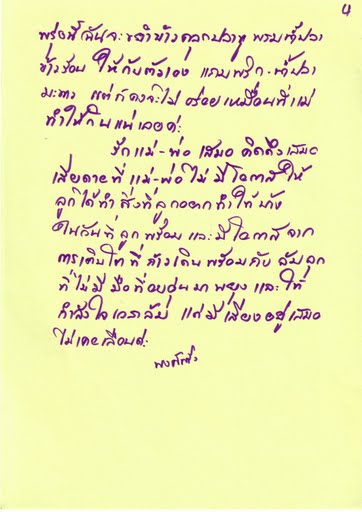 4
พรุ่งนี้ฉันจะขยำข้าวคลุกปลาทู พรมน้ำปลา
ข้าวร้อน ให้กับตัวเอง แถมพริก-น้ำปลา
มะนาว แต่ก็คงจะไม่อร่อยเหมือนที่แม่
ทำให้กินแน่เลยค่ะ
รักแม่-พ่อ เสมอ คิดถึงเสมอ
เสียดายที่แม่-พ่อไม่มีโอกาสให้
ลูกได้ทำสิ่งที่ลูกอยากทำให้บ้าง
ในวันที่ลูกพร้อม และมีโอกาสจาก
การเติบโตที่ก้าวเดินพร้อมกับล้มลุก
ที่ไม่มีมือที่อบอุ่นมาพยุง และให้
กำลังใจเวลาล้ม แต่มีเสียงอยู่เสมอ
ไม่เคยเลือนค่ะ